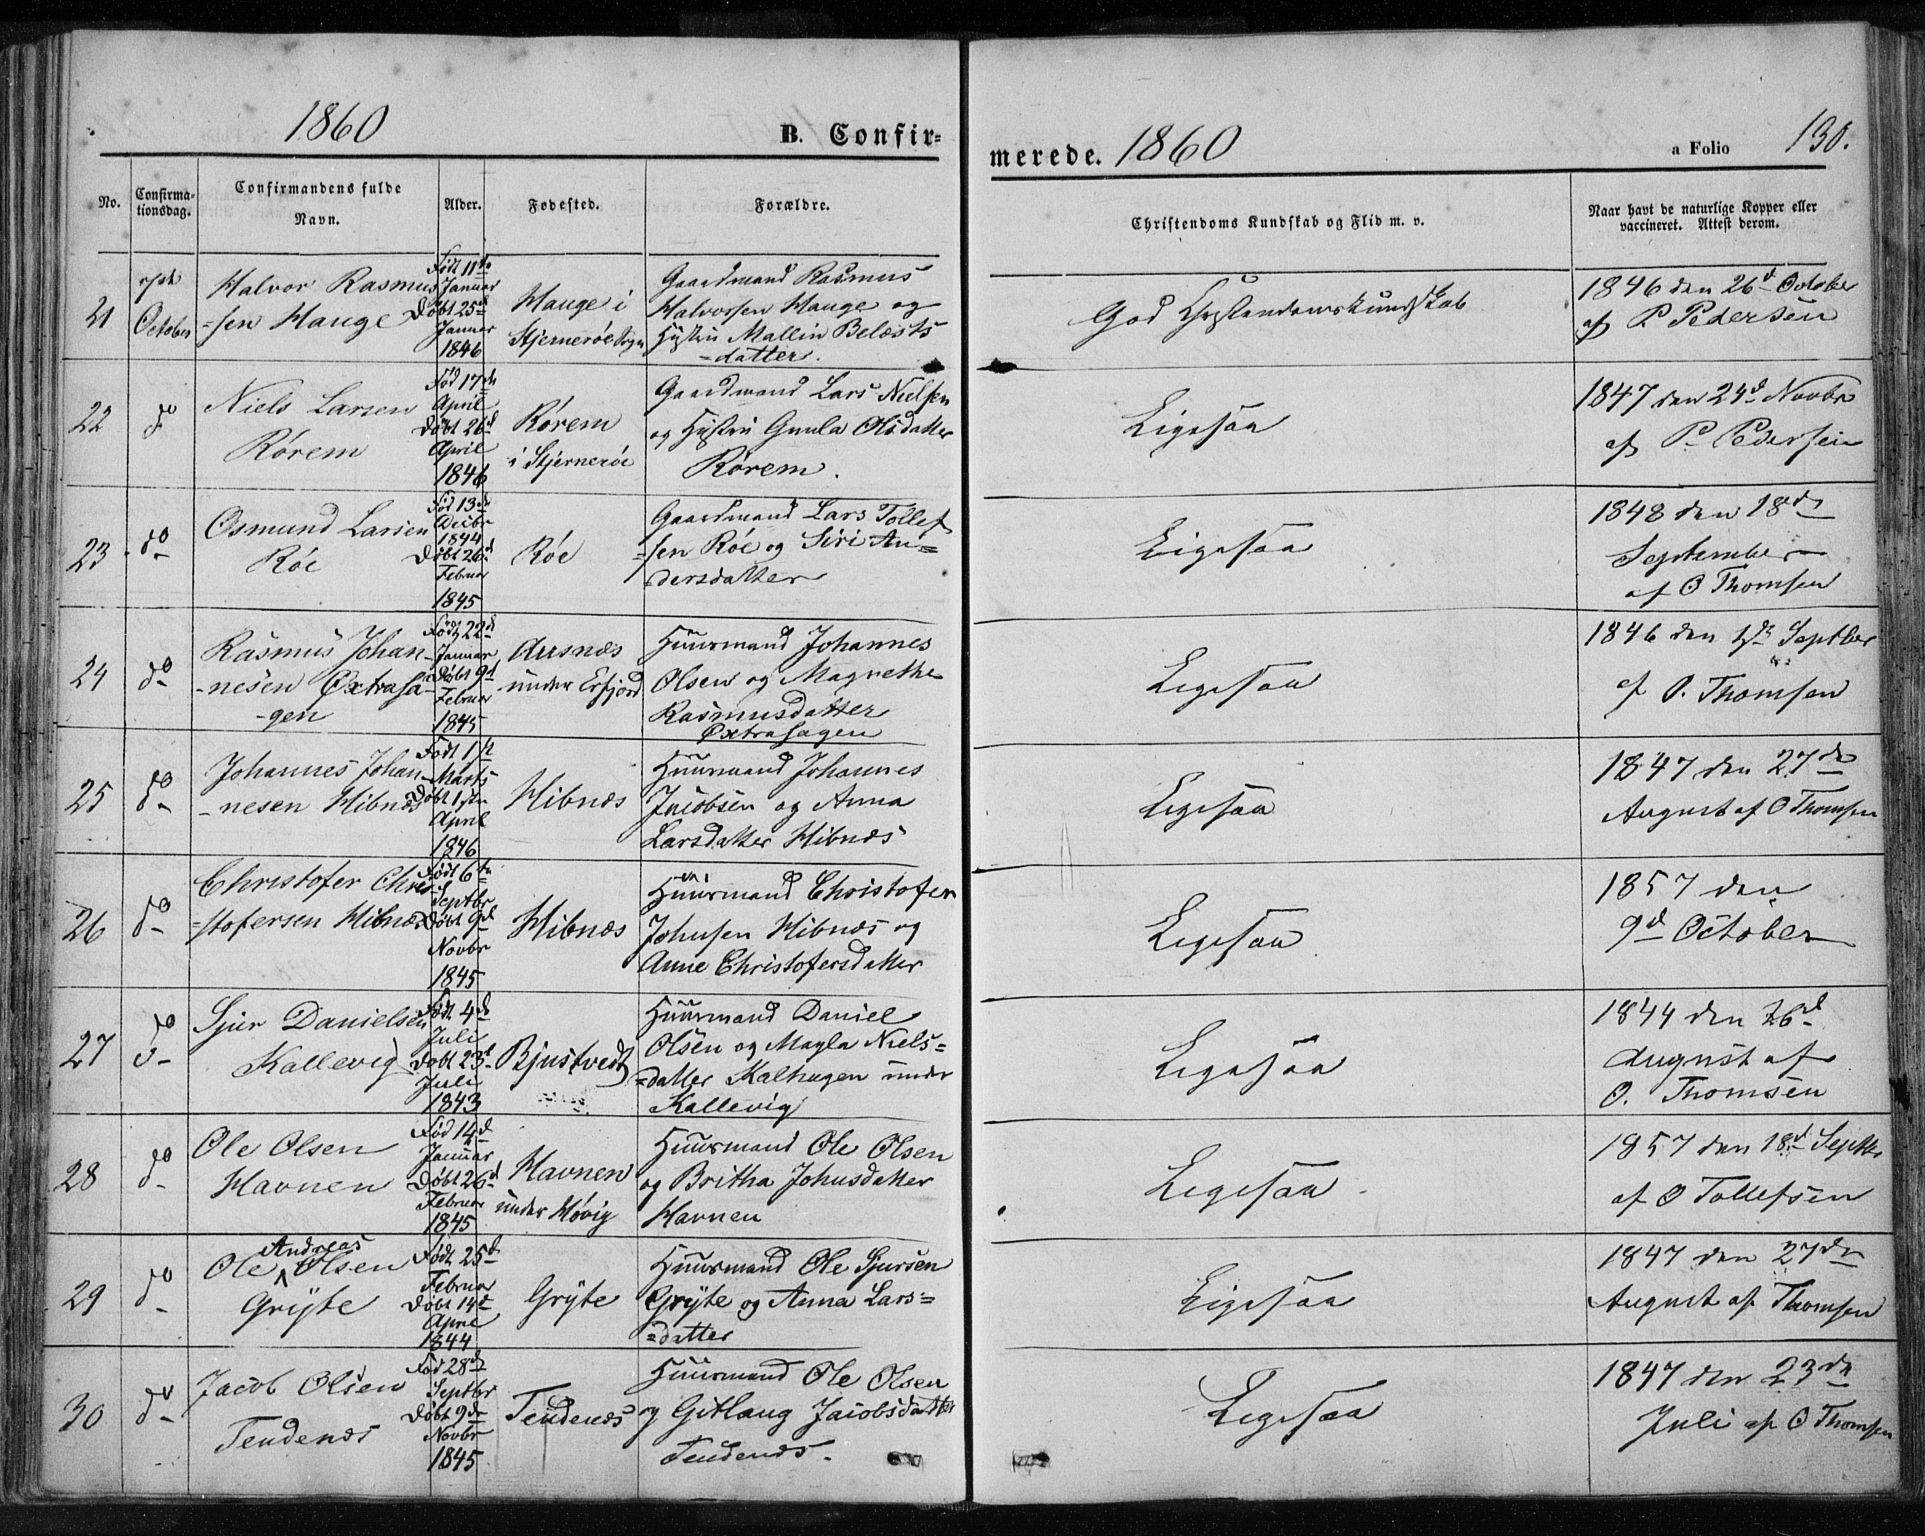 1860
B. Confir=
merede. 1860
a Folio 130.
No.
Confirma-
tionsdag.
Confirmandens fulde
Navn.
Alder.
Fødested.
Forældre.
Christendoms Kundskab og Flid m. v.
Naar havt de naturlige Kopper eller
vaccineret. Attest derom.
21
October
Halvor Rasmus
=sen Hauge
Født 11te
Januar
Døbt 25d
Januar
1846
Hauge i
Stjernerøe Sogn
Gaardmand Rasmus
Halvorsen Hauge og
Hustru Mallin Belæsts
=datter.
God Christendomskundskab
1846 den 26d October
af P. Pedersen
22
do
Niels Larsen
Rørem
Fød 17de
April
Døbt 26d
April
1846
Rørem
i Stjernerøe
Gaardmand Lars Nielsen
og Hustru Gunla Olsdatter
Rørem.
Ligesaa
1847 den 24d Novbr
af P. Pedersen
23
do
Osmund Larsen
Røe
Fød 13d
Decbr
1844
Døbt 26d
Februar
1845
Røe
Gaardmand Lars Tollef
=sen Røe og Siri An=
=dersdatter
Ligesaa
1848 den 18de
September
af O Thomsen
24
do
Rasmus Johan-
-nesen Øxtrasa-
-gen
Født 22d
Januar
Døbt 9d
Februar
1845
Aasnæs
under Erfjord
Huusmand Johannes
Olsen og Magnethe
Rasmusdatter
Øxtrasagen
Ligesaa
1846 den Septber
af O. Thomsen
25
do
Johannes Johan-
-nesen Hibnæs
Født 1ste
Marts
Døbt 1ste
April
1846
Hibnæs
Huusmand Johannes
Jacobsen og Anna
Larsdatter Hibnæs
Ligesaa
1847 den 27de
August af O Thomsen
26
do
Christofer Chri-
=stofersen Hibnæs
Født 6te
Septbr
Døbt 9d
Novbr
1845
Hibnæs
Huusmand Christofer
Johnsen Hibnæs og
Anne Christofersdatter
Ligesaa
1857 den
9d October
27
do
Sjur Danielsen
Kallevig
Født 4d
Juli
Døbt 23d
Juli
1843
Bjustvedt
Huusmand Daniel
Olsen og Magla Niels=
=datter Kalhagen under
Kallevig
Ligesaa
1844 den 26d
August af
O. Thomsen
28
do
Ole Olsen
Havnen
Fød 14d
Januar
Døbt 26d
Februar
1845
Havnen
under Høvig
Huusmand Ole Olsen
og Britha Johnsdatter
Havnen
Ligesaa
1857 den 18d Septbr
af O Tollefsen
29
do
Andreas
Ole Olsen
Grýte
Født 25d
Februar
Døbt 14d
April
1844
Grýte
Huusmand Ole Sjursen
Grýte og Anna Lars=
=datter
Ligesaa
1847 den 27de
August af Thomsen
30
do
Jacob Olsen
Tendenæs
Fød 28d
Septbr
Døbt 9de
Novbr
1845
Tendenæs
Huusmand Ole Olsen
og Gitlaug Jacobsdatter
Tendenæs.
Ligesaa
1847 den 23de
Juli af O Thomsen